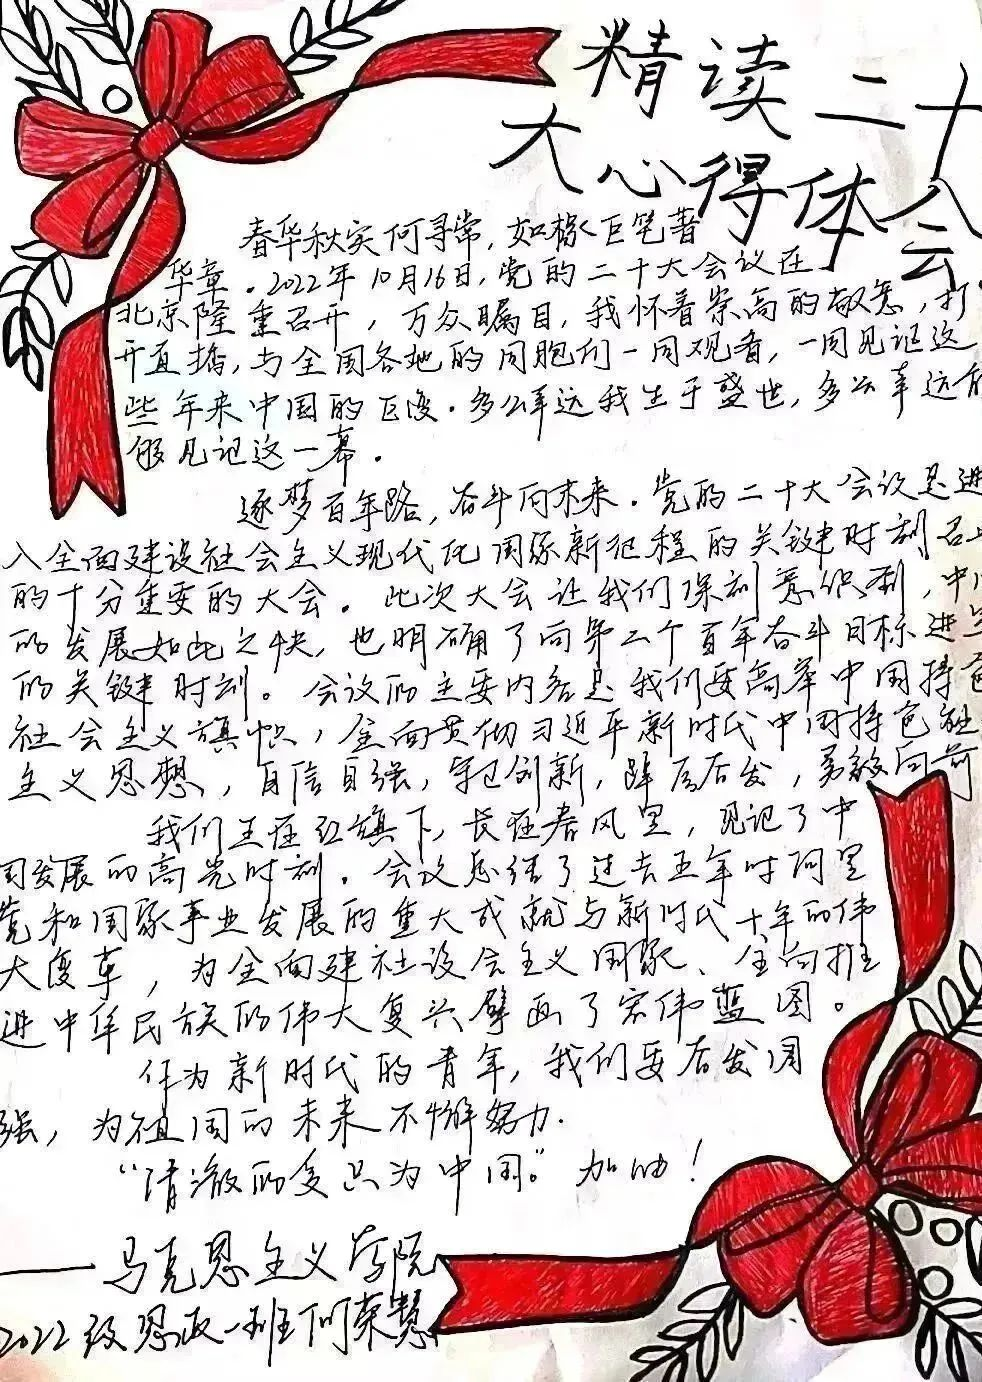 精读二十
大心得体会
春华秋实何寻常,如椽巨笔著
华章.2022年10月16日,党的二十大会议在
北京隆重召开,万众瞩目,我怀着崇高的敬意,打
开直播,与全国各地的同胞们一同观看,一同见记这
些年来中国的巨变.多么幸运我生于盛世,多么幸运能
够见记这一幕.
逐梦百年路,奋斗向未来.党的二十大会议是进
入全面建设社会主义现代化国家新征程的关键时刻召
的十分重要的大会。此次大会让我们深刻意识到,中
的发展如此之快,也明确了向第二个百年奋斗目标进
的关键时刻。会议的主要内容是我们要高举中国特色
社会主义旗帜,全面贯彻习近平新时代中国特色社
主义思想,自信自强,守正创新,踔厉奋发,勇毅向前
我们生在红旗下,长在春风里,见记了中
国发展的高光时刻.会议总结了过去五年时间里
党和国家事业发展的重大成就与新时代十年的伟
大变革,为全面建社设会主义国家、全面推
进中华民族的伟大复兴擘画了宏伟蓝图。
作为新时代的青年,我们要奋发图
强,为祖国的未来不懈努力.
“清澈的爱只为中国。”加油!
——马克思主义学院
2022级思政一班何荣慧